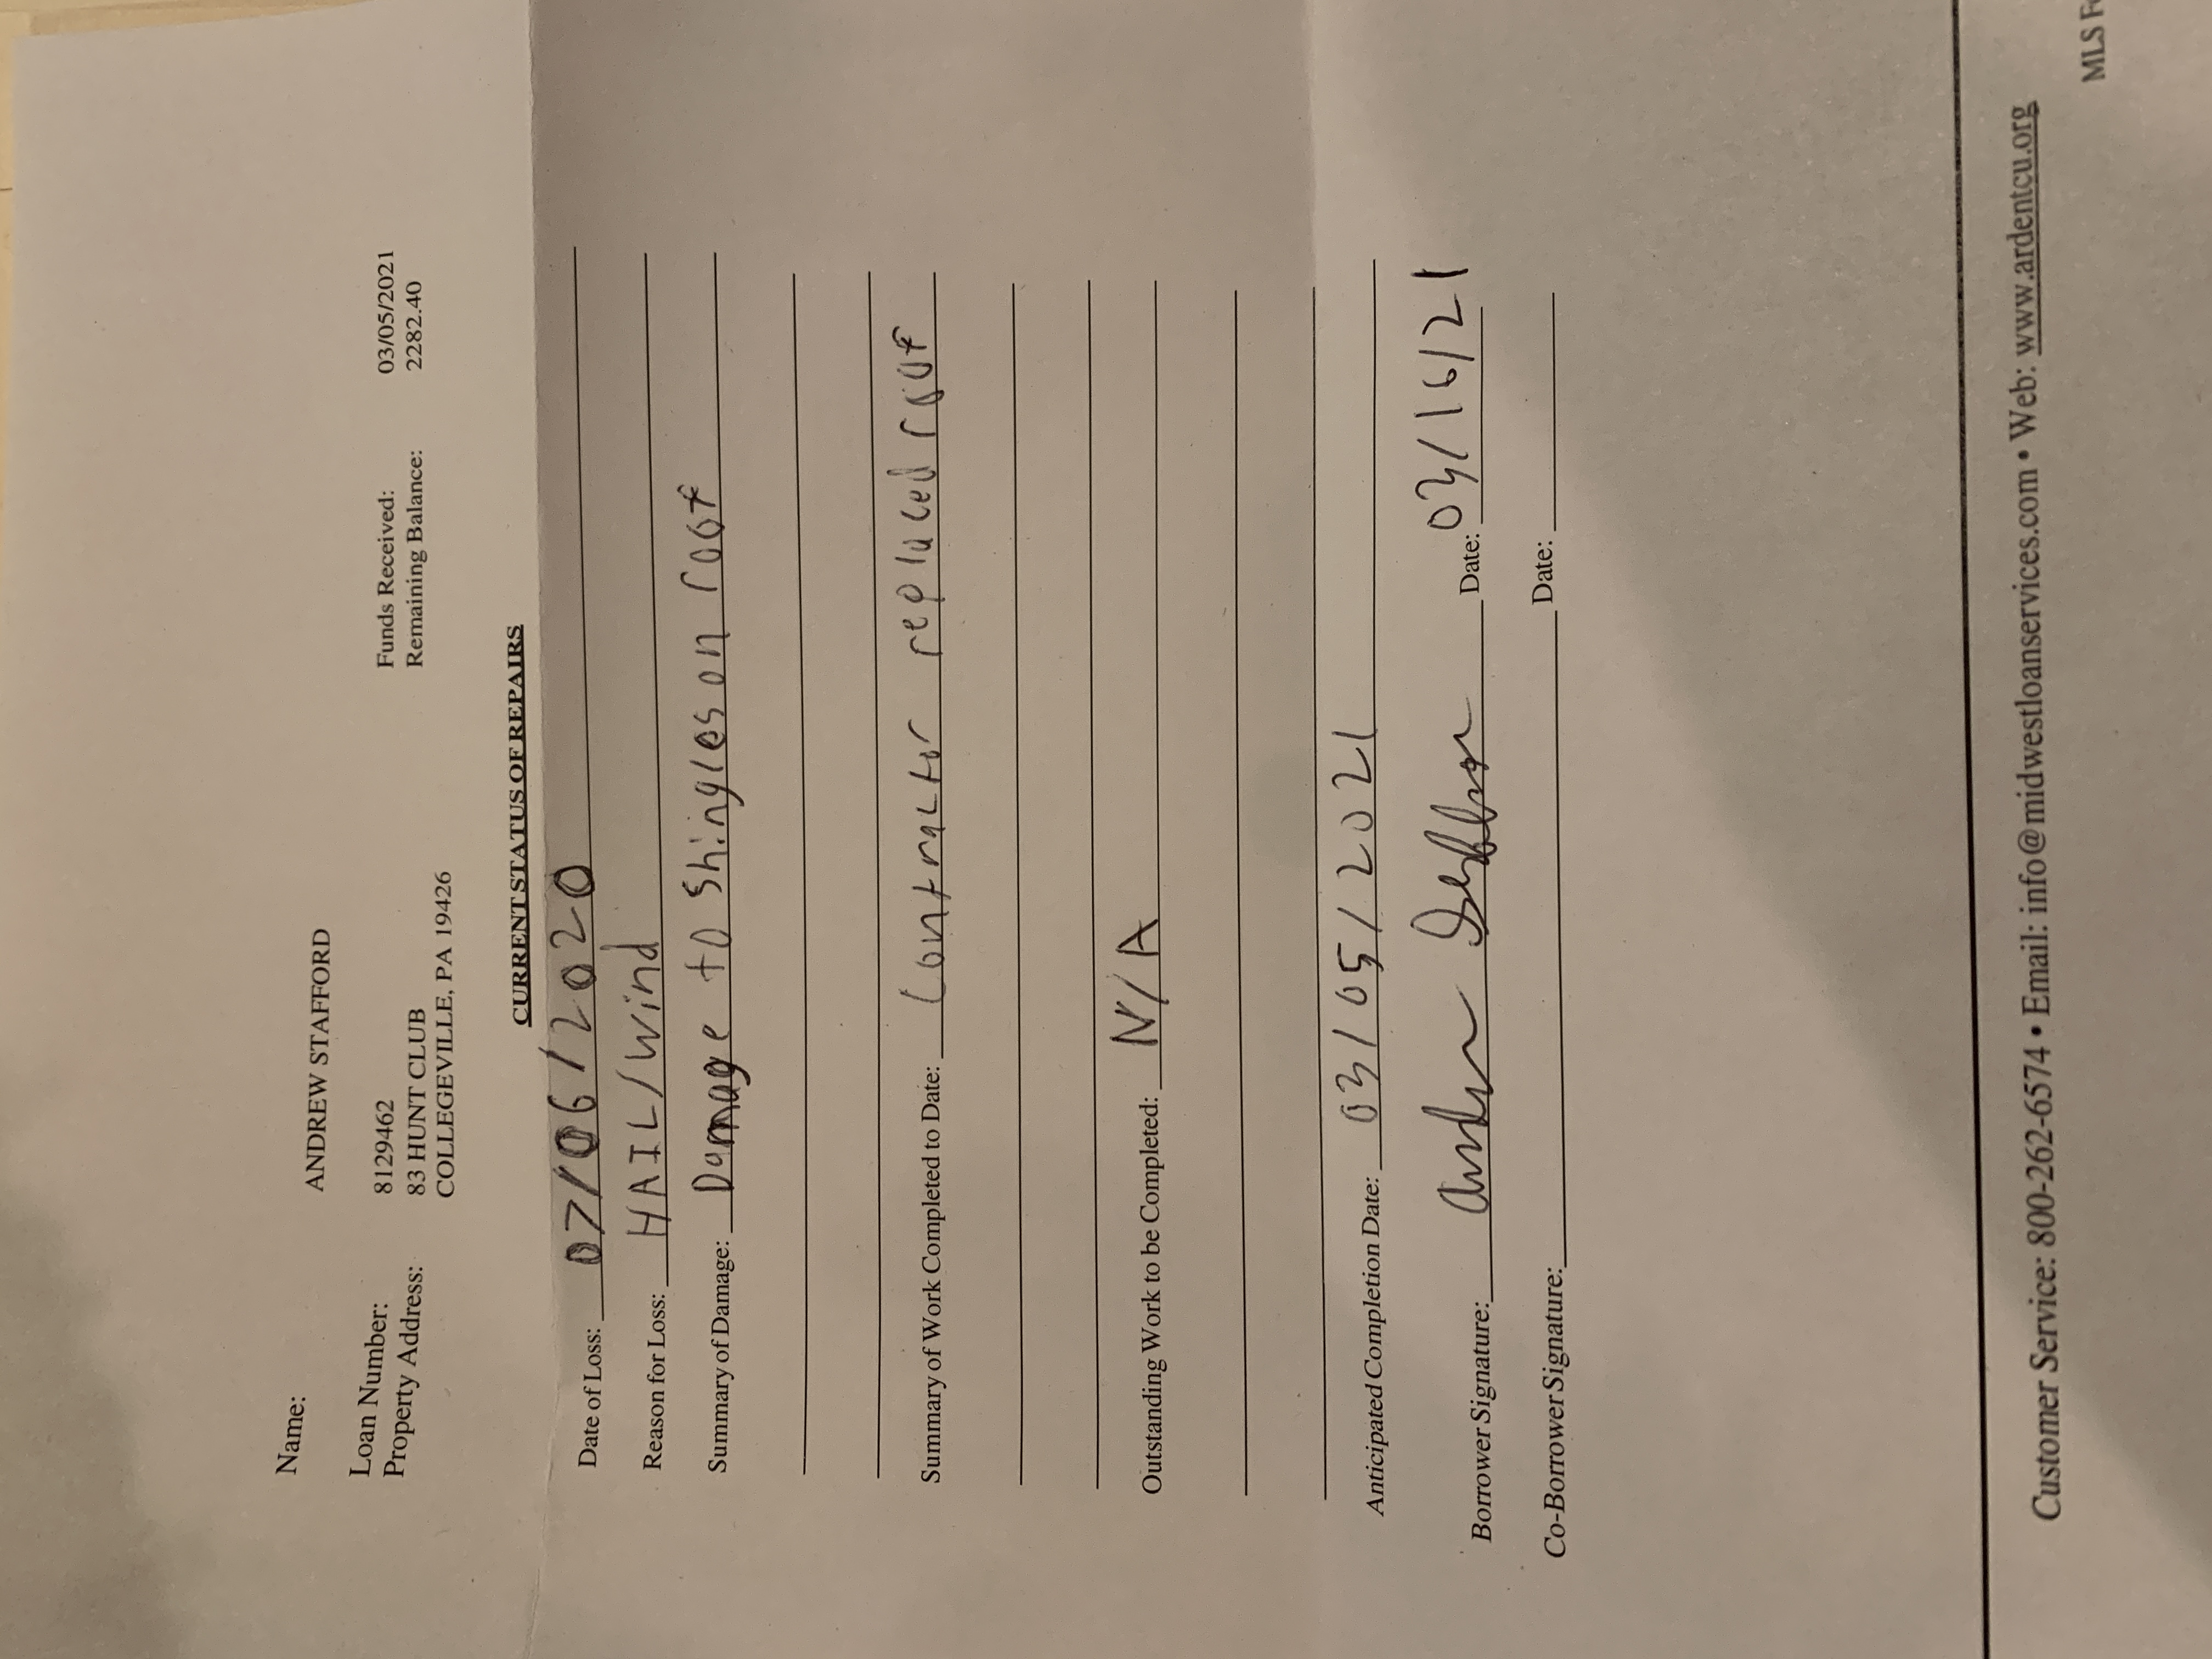 Name: ANDREW STAFFORD
Loan Number: 8129462 Funds Received: 03/05/2021
Property Address: 83 HUNT CLUB Remaining Balance: 2282.40
COLLEGEVILLE, PA 19426
CURRENT STATUS OF REPAIRS
Date of Loss: 07/06/2020
Reason for Loss: HAIL/Wind
Summary of Damage: Damage to shingles on roof
Summary of Work Completed to Date: Contractor replaced roof
Outstanding Work to be Completed: N/A
Anticipated Completion Date: 03/05/2021
Borrower Signature: Andrew Stafford Date: 03/16/21
Co-Borrower Signature: Date:
Customer Service: 800-262-6574 • Email: info@midwestloanservices.com • Web: www.ardentcu.org
MLS